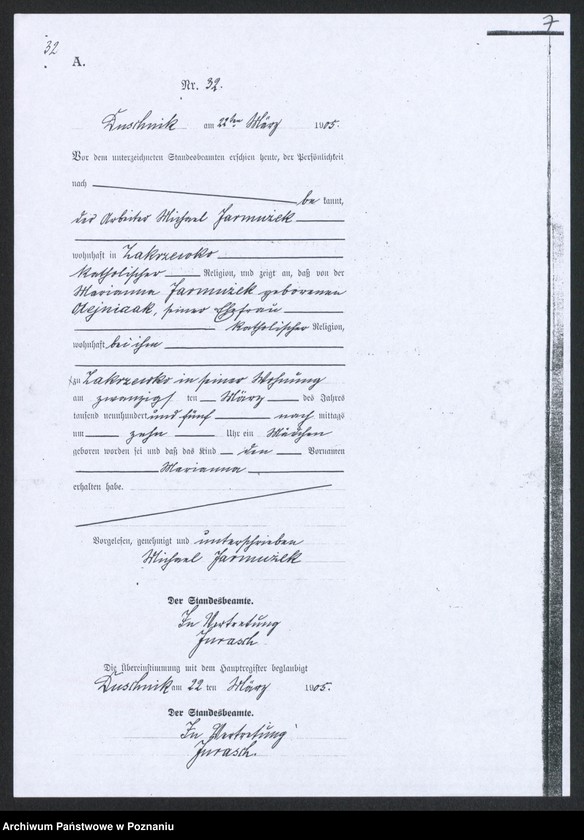 7
32
A.
Nr. 32.
Duschnik am 22ten März 1905.
Vor dem unterzeichneten Standesbeamten erschien heute, der Persönlichkeit
nach
be kannt,
der Arbeiter Michael Jarmużek
wohnhaft in Zakrzewko
katholischer Religion, und zeigt an, daß von der
Marianna Jarmużek geborenen
seiner Ehefrau
katholischer Religion,
wohnhaft bei ihm
zu Zakrzewko in seiner Wohnung
am zwanzigsten März des Jahres
tausend neunhundert und fünf nach mittags
um zehn Uhr ein Mädchen
geboren worden sei und daß das Kind den Vornamen
Marianna
erhalten habe.
Vorgelesen, genehmigt und unterschrieben
Michael Jarmużek
Der Standesbeamte.
In Vertretung
Jurasch.
Die Übereinstimmung mit dem Hauptregister beglaubigt
Duschnik am 22 ten März 1905.
Der Standesbeamte.
In Vertretung
Jurasch.
Archiwum Państwowe w Poznaniu